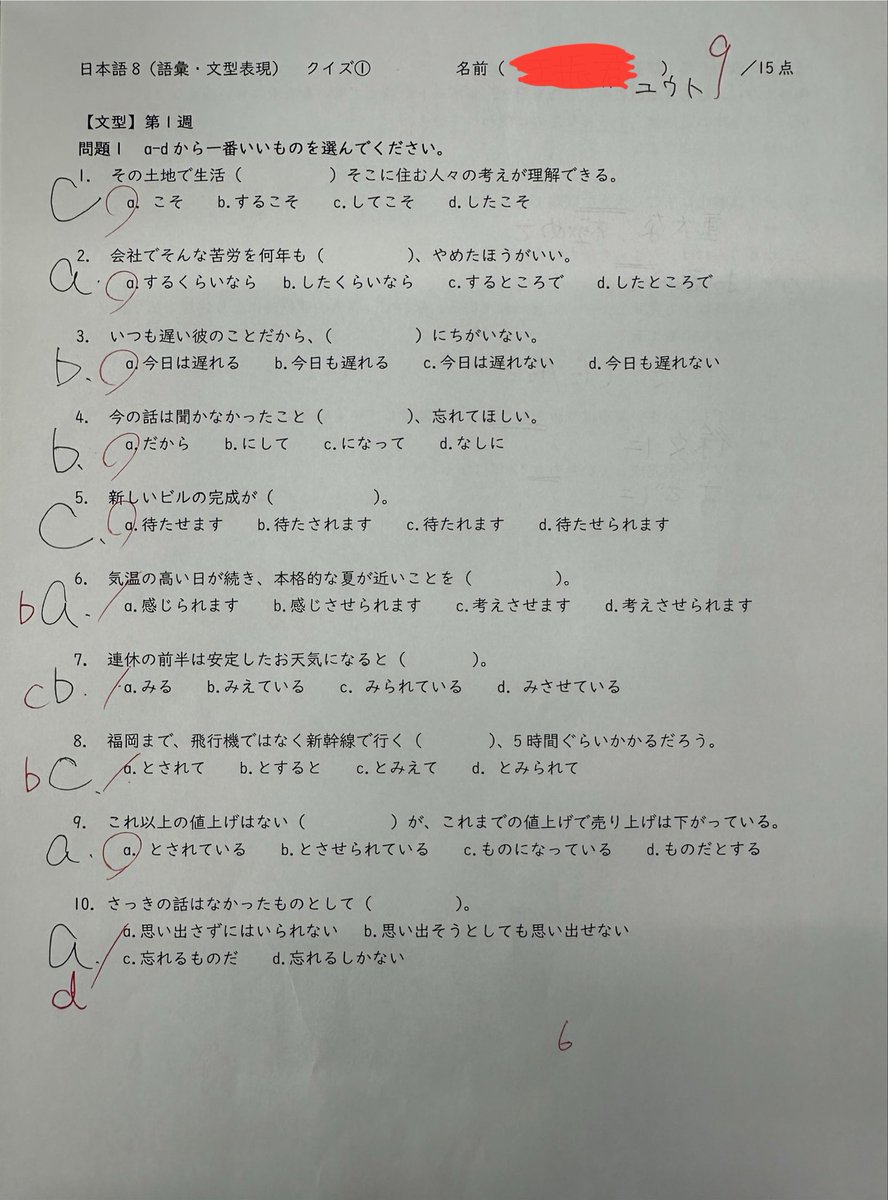 日本語8(語彙・文型表現) クイズ① 名前( )ユウト 9 /15点
【文型】第1週
問題1 a-dから一番いいものを選んでください。
1. その土地で生活( )そこに住む人々の考えが理解できる。
C a. こそ b.するこそ c.してこそ d.したこそ
2. 会社でそんな苦労を何年も( )、やめたほうがいい。
a. a.するくらいなら b.したくらいなら c.するところで d.したところで
3. いつも遅い彼のことだから、( )にちがいない。
b. a.今日は遅れる b.今日も遅れる c.今日は遅れない d.今日も遅れない
4. 今の話は聞かなかったこと( )、忘れてほしい。
b. a.だから b.にして c.になって d.なしに
5. 新しいビルの完成が( )。
C. a.待たせます b.待たされます c.待たれます d.待たせられます
6. 気温の高い日が続き、本格的な夏が近いことを( )。
b a. a.感じられます b.感じさせられます c.考えさせます d.考えさせられます
7. 連休の前半は安定したお天気になると( )。
c b. a.みる b.みえている c. みられている d. みさせている
8. 福岡まで、飛行機ではなく新幹線で行く( )、5時間ぐらいかかるだろう。
b C. a.とされて b.とすると c.とみえて d. とみられて
9. これ以上の値上げはない( )が、これまでの値上げで売り上げは下がっている。
a. a. とされている b.とさせられている c.ものになっている d.ものだとする
10. さっきの話はなかったものとして( )。
a. a.思い出さずにはいられない b.思い出そうとしても思い出せない
d c.忘れるものだ d.忘れるしかない
6